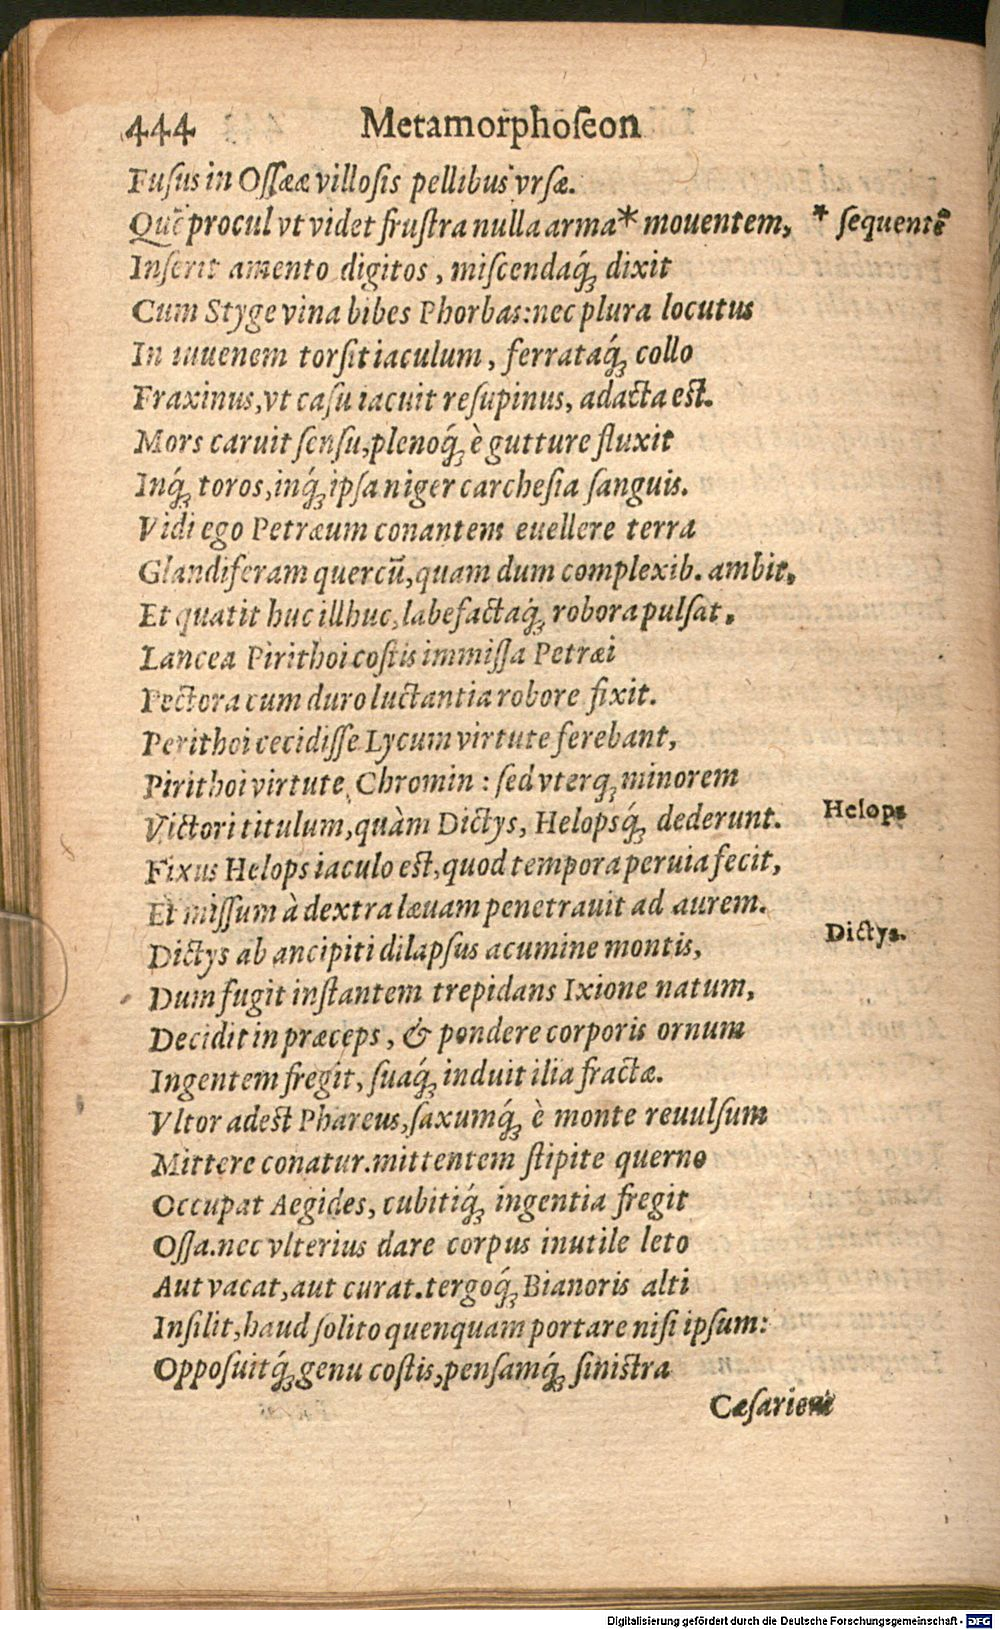 444 Metamorphoſeon
Fuſus in Oſſææ villoſis pellibus vrſæ.
Quē procul vt videt fruſtra nulla arma* mouentem, * ſequentē
Inſerit amento digitos, miſcendaq́ꝫ dixit
Cum Styge vina bibes Phorbas: nec plura locutus
In iuuenem torſit iaculum, ferrataq́ꝫ collo
Fraxinus, vt caſu iacuit reſupinus, adacta eſt.
Mors caruit ſenſu, plenoq́ꝫ è gutture fluxit
Inq́ꝫ toros, inq́ꝫ ipſa niger carcheſia ſanguis.
Vidi ego Petræum conantem euellere terra
Glandiferam quercū, quam dum complexib. ambit,
Et quatit huc illhuc, labefactaq́ꝫ robora pulſat,
Lancea Pirithoi coſtis immiſſa Petræi
Pectora cum duro luctantia robore fixit.
Perithoi cecidiſſe Lycum virtute ferebant,
Pirithoi virtute Chromin: ſed vterqꝫ minorem
Victori titulum, quàm Dictys, Helopsq́ꝫ dederunt. Helops
Fixus Helops iaculo eſt, quod tempora peruia fecit,
Et miſſum à dextra læuam penetrauit ad aurem.
Dictys ab ancipiti dilapſus acumine montis, Dictys.
Dum fugit inſtantem trepidans Ixione natum,
Decidit in præceps, & pondere corporis ornum
Ingentem fregit, ſuaq́ꝫ induit ilia fractæ.
Vltor adeſt Phareus, ſaxumq́ꝫ è monte reuulſum
Mittere conatur. mittentem ſtipite querno
Occupat Aegides, cubitiq́ꝫ ingentia fregit
Oſſa. nec vlterius dare corpus inutile leto
Aut vacat, aut curat. tergoq́ꝫ Bianoris alti
Inſilit, haud ſolito quenquam portare niſi ipſum:
Oppoſuitq́ꝫ genu coſtis, penſamq́ꝫ ſiniſtra
Cæſariem
Digitalisierung gefördert durch die Deutsche Forschungsgemeinschaft - DFG